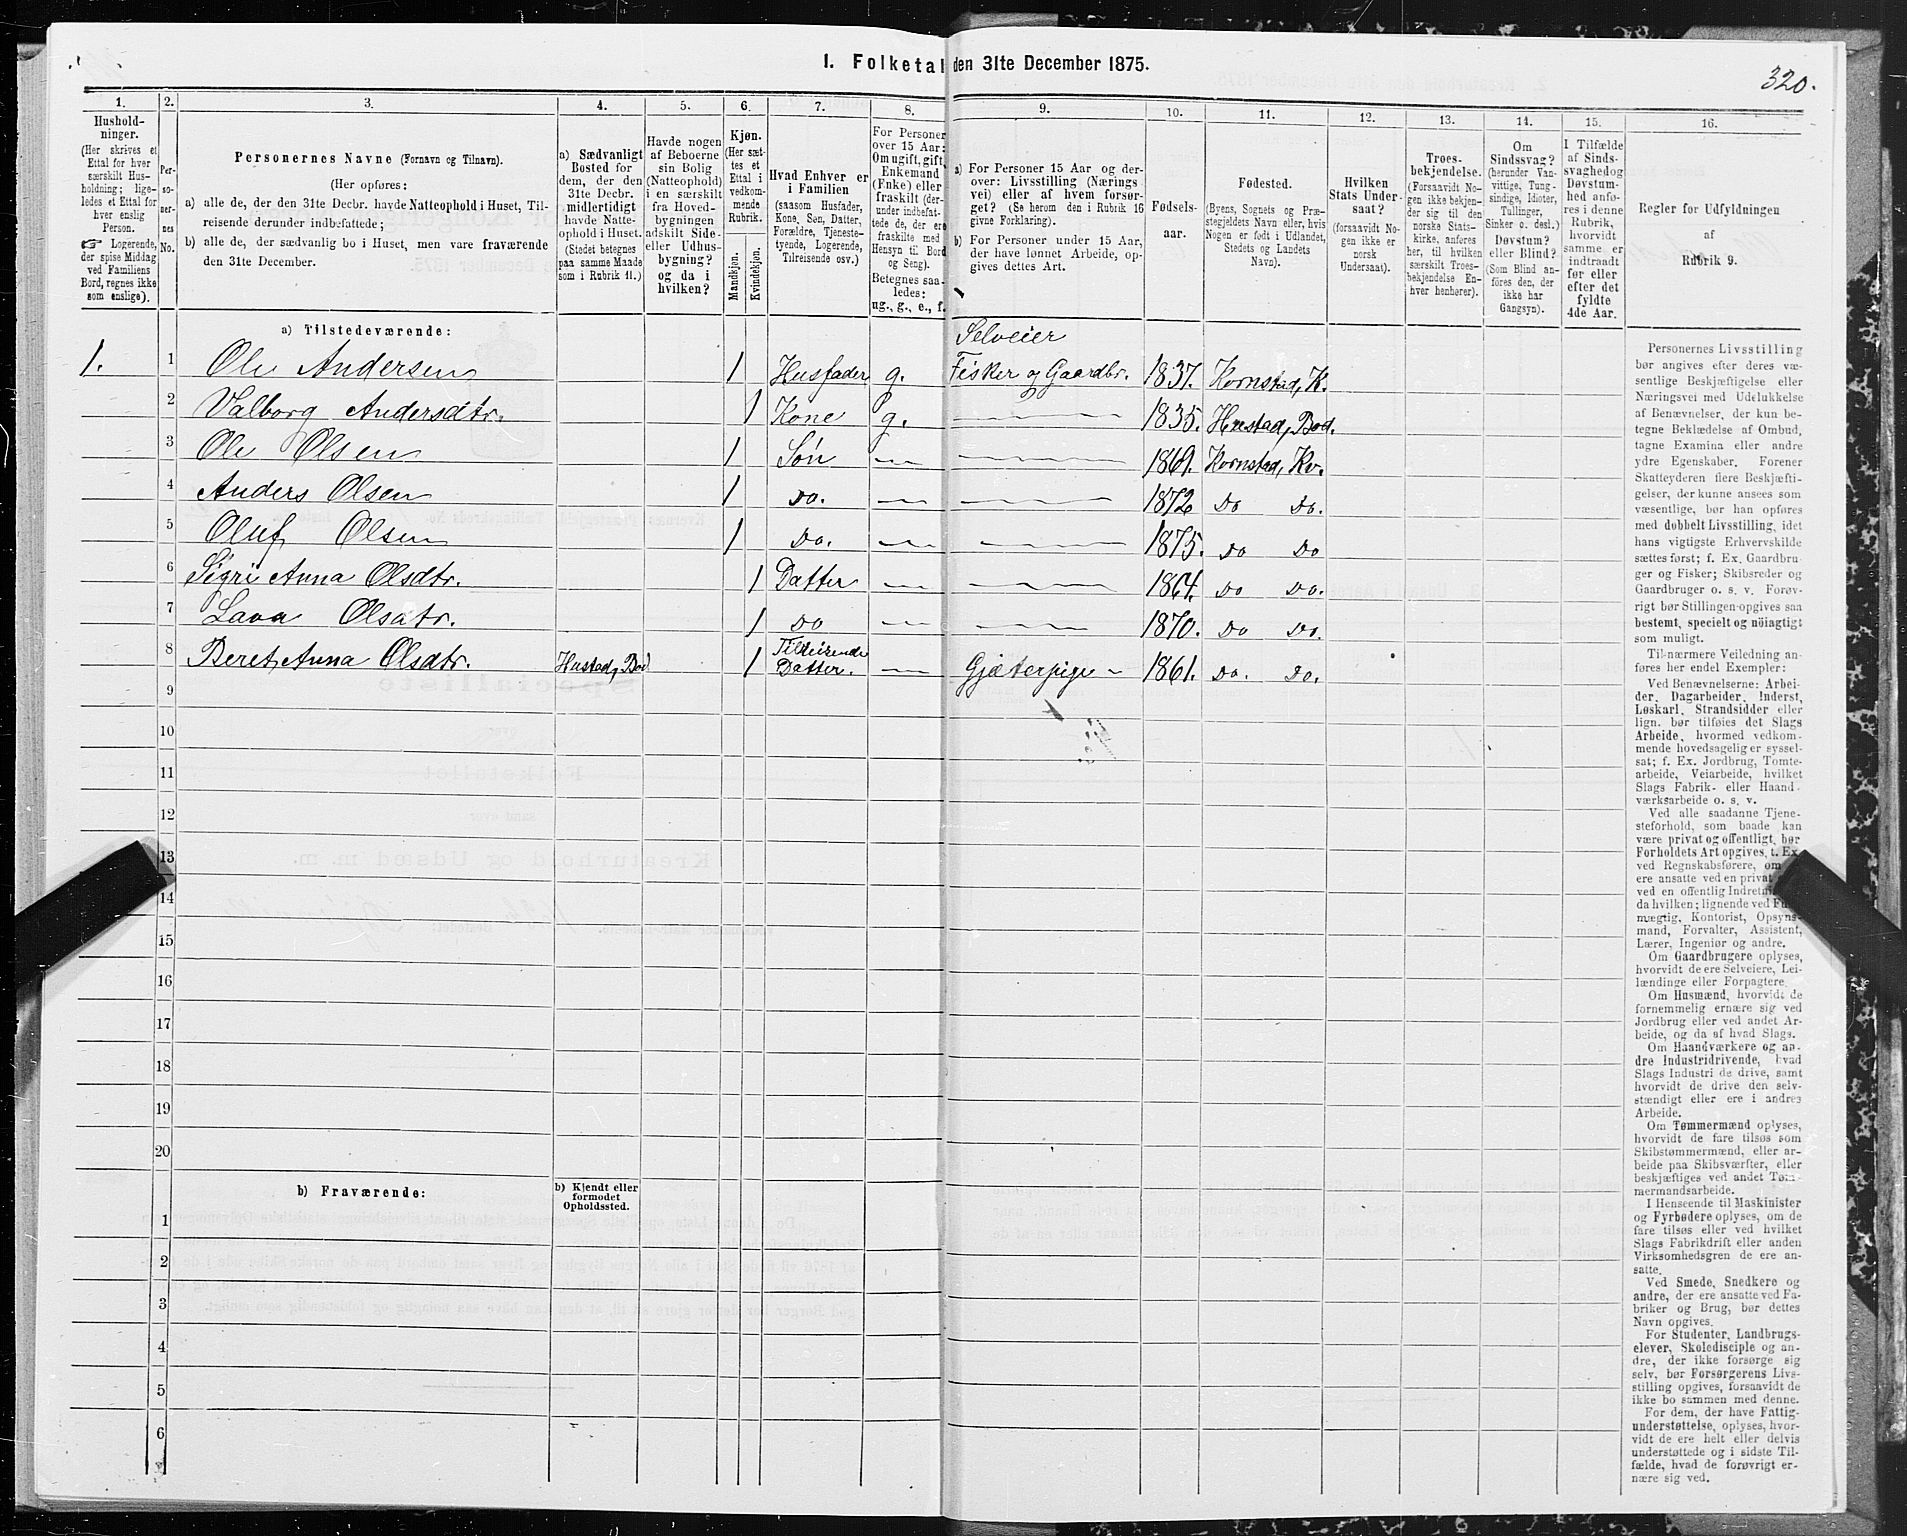 1. Folketal den 31te December 1875.
320.
1. 2. 3. 4. 5. 6. 7. 8. 9. 10. 11. 12. 13. 14. 15. 16.
Hushold-
ninger.
(Her skrives et
Ettal for hver
særskilt Hus-
holdning; lige-
ledes et Ettal for
hver enslig
Person.
☞ Logerende,
der spise Middag
ved Familiens
Bord, regnes ikke
som enslige).
Per-
so-
ner-
nes
No.
Personernes Navne (Fornavn og Tilnavn).
(Her opføres:
a) alle de, der den 31te Decbr. havde Natteophold i Huset, Til-
reisende derunder indbefattede;
b) alle de, der sædvanlig bo i Huset, men vare fraværende
den 31te December.
a) Sædvanligt
Bosted for
dem, der den
31te Decbr.
midlertidigt
havde Natte-
ophold i Huset.
(Stedet betegnes
paa samme Maade
som i Rubrik 11.)
Havde nogen
af Beboerne
sin Bolig
(Natteophold)
i en særskilt
fra Hoved-
bygningen
adskilt Side-
eller Udhus-
bygning?
og da i
hvilken?
Kjøn.
(Her sæt-
tes et
Ettal i
vedkom-
mende
Rubrik.
Mandkjøn.
Kvindekjøn.
Hvad Enhver er
i Familien
(saasom Husfader,
Kone, Søn, Datter,
Forældre, Tjeneste-
tyende, Logerende,
Tilreisende osv.)
For Personer
over 15 Aar:
Om ugift, gift,
Enkemand
(Enke) eller
fraskilt (der-
under indbefat-
tede de, der ere
fraskilte med
Hensyn til Bord
og Seng).
Betegnes saa-
ledes:
ug., g., e., f.
a) For Personer 15 Aar og der-
over: Livsstilling (Nærings
vei) eller af hvem forsør-
get? (Se herom den i Rubrik 16
givne Forklaring).
b) For Personer under 15 Aar,
der have lønnet Arbeide, op-
gives dettes Art.
Fødsels-
aar.
Fødested.
(Byens, Sognets og Præ-
stegjeldets Navn eller, hvis
Nogen er født i Udlandet,
Stedets og Landets
Navn).
Hvilken
Stats Under-
saat?
(forsaavidt No-
gen ikke er
norsk
Undersaat).
Troes-
bekjendelse.
(Forsaavidt No-
gen ikke bekjen-
der sig til den
norske Stats-
kirke, anføres
her, til hvilken
særskilt Troes-
bekjendelse En-
hver henhører).
Om
Sindssvag?
(herunder Van-
vittige, Tung-
sindige, Idioter,
Tullinger,
Sinker o. desl.)
Døvstum?
eller Blind?
(Som Blind an-
føres den, der
ikke har
Gangsyn).
I Tilfælde
af Sinds-
svaghed og
Døvstum-
hed anfø-
res i denne
Rubrik,
hvorvidt
samme er
indtraadt
før eller
efter det
fyldte
4de Aar.
Regler for Udfyldningen
af
Rubrik 9.
a) Tilstedeværende:
Selveier
1. 1 Ole Andersen 1 Husfader g. Fisker og Gaardbr. 1837. Kornstad, K.
2 Valborg Andersdtr. 1 Kone g. — 1835. Hustad, Bod.
3 Ole Olsen 1 Søn — — 1869. Kornstad, Kv.
4 Anders Olsen 1 Do. — — 1872 Do Do.
5 Oluf Olsen 1 Do. — — 1875. Do Do
6 Sigri Anna Olsdtr. 1 Datter — — 1864. Do Do.
7 Lava Olsdtr. 1 Do — — 1870. Do Do.
Tilreisende
8 Beret Anna Olsdtr. Hustad, Bod 1 Datter. — Gjæterpige – 1861. Do. Do.
9
10
11
12
13
14
15
16
17
18
19
20
b) Fraværende:
b) Kjendt eller
formodet
Opholdssted.
1
2
3
4
5
6
Personernes Livsstilling
bør angives efter deres væ-
sentlige Beskjæftigelse eller
Næringsvei med Udelukkelse
af Benævnelser, der kun be-
tegne Beklædelse af Ombud,
tagne Examina eller andre
ydre Egenskaber. Forener
Skatteyderen flere Beskjæfti-
gelser, der kunne ansees som
væsentlige, bør han opføres
med dobbelt Livsstilling, idet
hans vigtigste Erhvervskilde
sættes først; f. Ex. Gaardbru-
ger og Fisker; Skibsreder og
Gaardbruger o. s. v. Forøv-
rigt bør Stillingen opgives saa
bestemt, specielt og nöiagtigt
som muligt.
Til nærmere Veiledning an-
føres her endel Exempler:
Ved Benævnelserne: Arbei-
der, Dagarbeider, Inderst,
Løskarl, Strandsidder eller
lign. bør tilføies det Slags
Arbeide, hvormed vedkom-
mende hovedsagelig er syssel-
sat; f. Ex. Jordbrug, Tomte-
arbeide, Veiarbeide, hvilket
Slags Fabrik- eller Haand-
værksarbeide o. s. v.
Ved alle saadanne Tjene-
steforhold, som baade kan
være privat og offentligt, bør
Forholdets Art opgives, t. Ex.
ved Regnskabsførere, om
ere ansatte ved en privat
ved en offentlig Indretn
da hvilken; lignende ved Fu
mægtig, Kontorist, Opsyns-
mand, Forvalter, Assistent,
Lærer, Ingeniør og andre.
Om Gaardbrugere oplyses,
hvorvidt de ere Selveiere, Lei-
lændinge eller Forpagtere.
Om Husmænd, hvorvidt de
fornemmelig ernære sig ved
Jordbrug eller ved andet Ar-
beide, og da af hvad Slags.
Om Haandværkere og an-
dre Industridrivende, hvad
Slags Industri de drive, samt
hvorvidt de drive den selv-
stændigt eller ere i andres
Arbeide.
Om Tømmermænd oplyses,
hvorvidt de fare tilsøs som
Skibstømmermænd, eller ar-
beide paa Skibsværfter, eller
beskjæftiges ved andet Tøm-
mermandsarbeide.
I Henseende til Maskinister
og Fyrbødere oplyses, om de
fare tilsøs eller ved hvilket
Slags Fabrikdrift eller anden
Virksomhedsgren de ere an-
satte.
Ved Smede, Snedkere og
andre, der ere ansatte ved Fa-
briker og Brug, bør dettes
Navn opgives.
For Studenter, Landbrugs-
elever, Skoledisciple og an-
dre, der ikke forsørge sig
selv, bør Forsørgerens Livs-
stilling opgives, forsaavidt de
ikke bo sammen med denne.
For dem, der have Fattig-
understøttelse, oplyses, hvor-
vidt de ere helt eller delvis
understøttede og i sidste Til-
fælde, hvad de forøvrigt er-
nære sig ved.